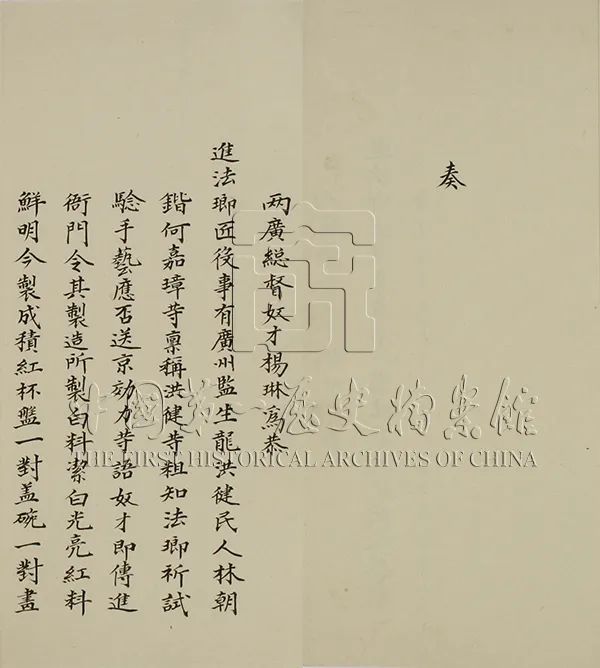 奏
两廣総督奴才楊琳爲恭
進法瑯匠役事有廣州監生龍洪健民人林朝
鍇何嘉璋䓁稟稱洪健䓁粗知法瑯祈試
驗手藝應否送京効力䓁語奴才即傳進
衙門令其製造所製白料潔白光亮紅料
鮮明今製成積紅杯盤一對盖碗一對畫
中国第一历史档案馆
THE FIRST HISTORICAL ARCHIVES OF CHINA